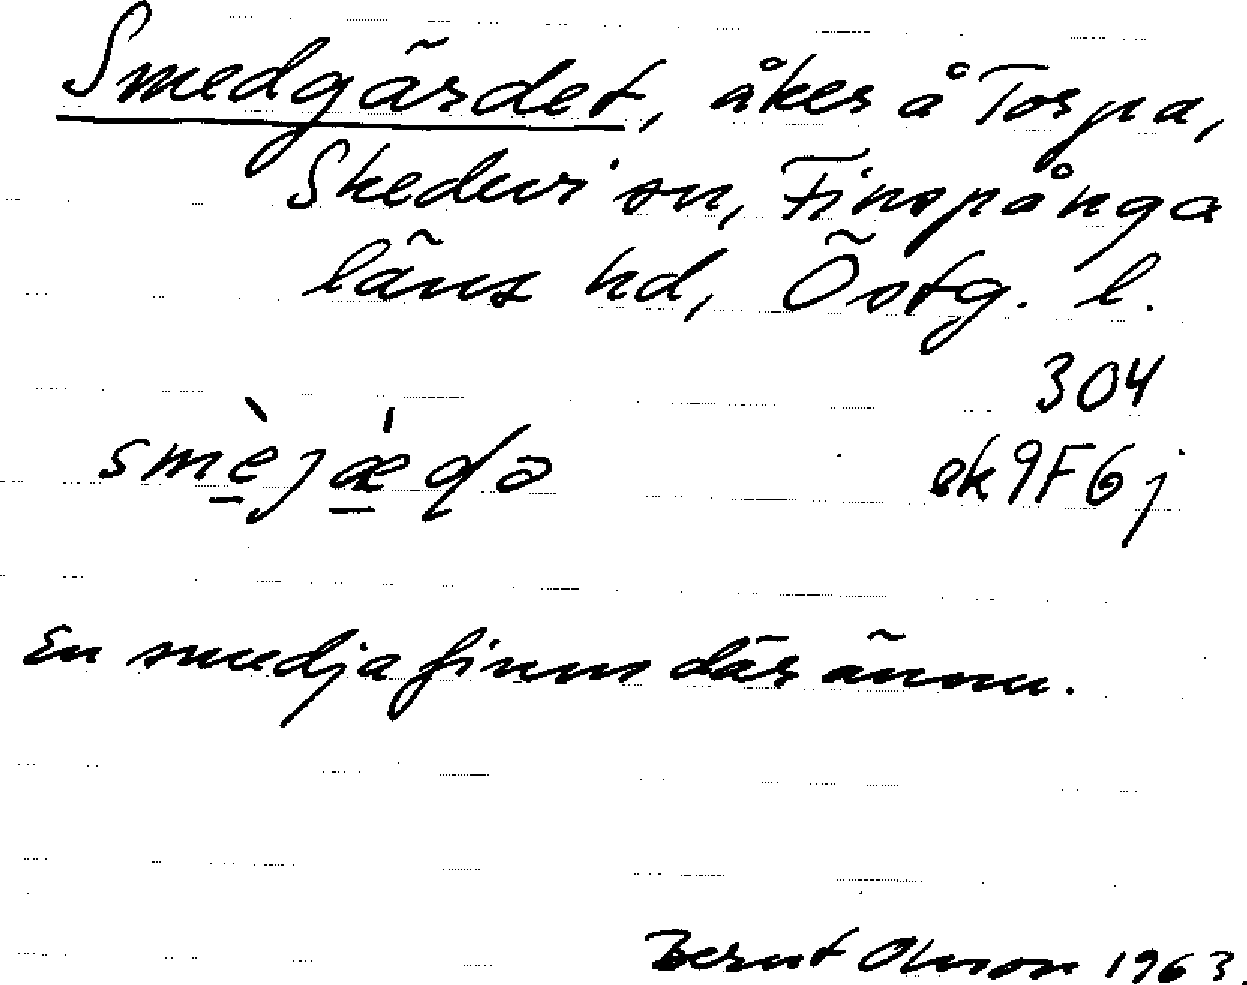 Smedgärdet, åker å Torpa,
Skedevi sn, Finspånga
läns hd, Östg. l.
304
smè̱jǽ̱ɖə ek9F6j
En smedja finns där ännu.
Bernt Olsson 1963.